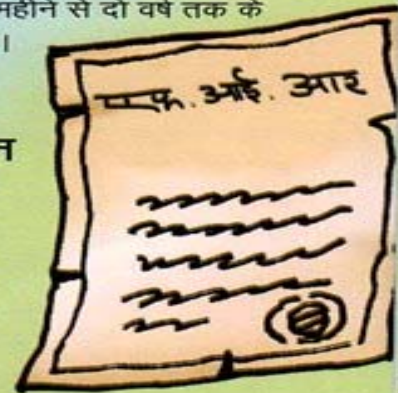 महीने से दो वर्ष तक के
।
न
एफ. आई. आर